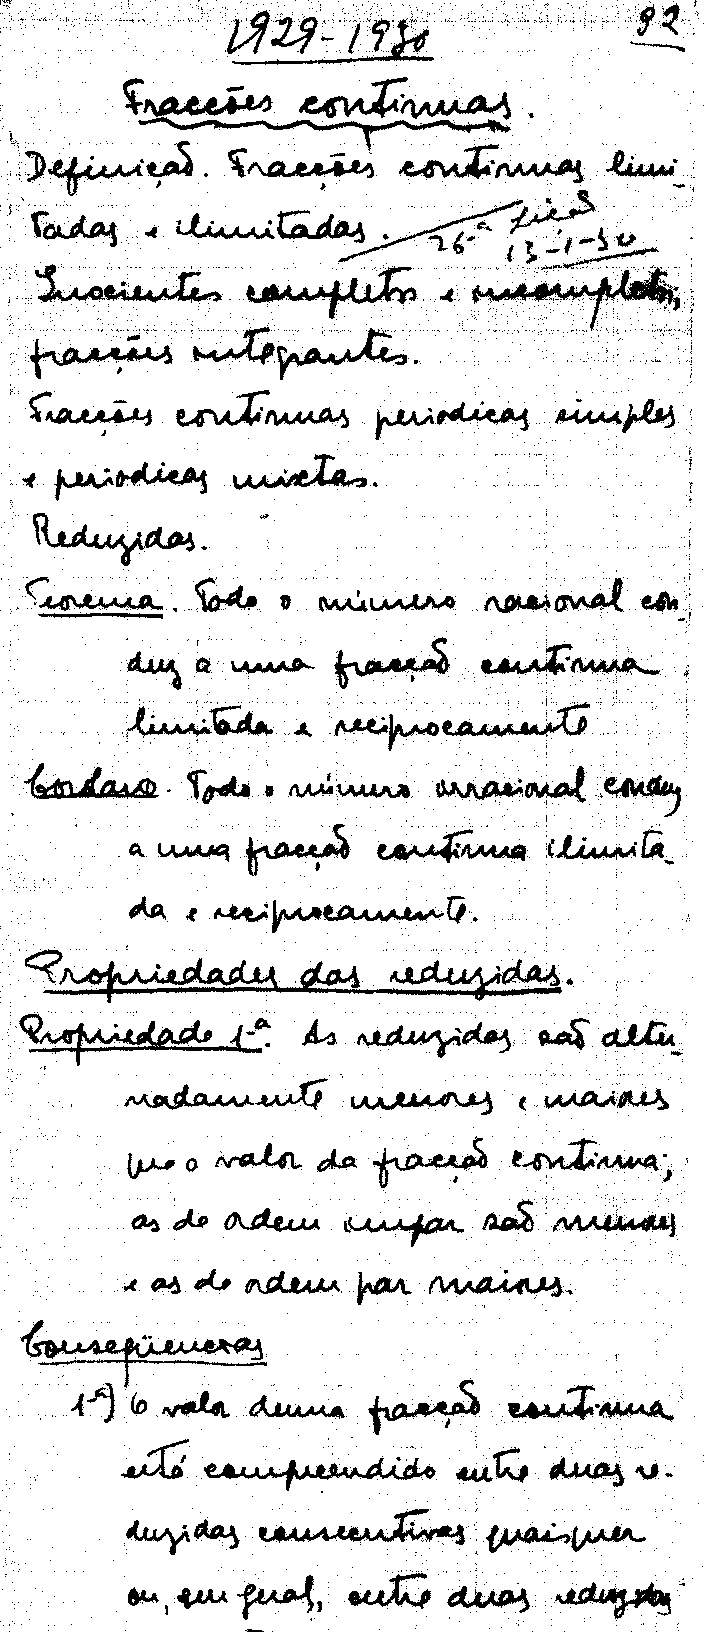 1929-1930
92
Fracções continuas.
Definição. Fracções continuas limi-
tadas e ilimitadas.
26-ª lição
13-1-30
Quocientes completos e incompletos,
fracções integrantes.
Fracções continuas periodicas simples
e periodicas mixtas.
Reduzidas.
Teorema. Todo o número racional con-
duz a uma fracção continua
limitada e reciprocamente
Corolario. Todo o número irracional conduz
a uma fracção continua ilimita-
da e reciprocamente.
Propriedades das reduzidas.
Propriedade 1-ª. As reduzidas são alter-
nadamente menores e maiores
que o valor da fracção continua;
as de ordem impar são menores
e as de ordem par maiores.
Conseqüencias
1-ª) O valor duma fracção continua
está compreendido entre duas re-
duzidas consecutivas quaisquer
ou, em geral, entre duas reduzidas